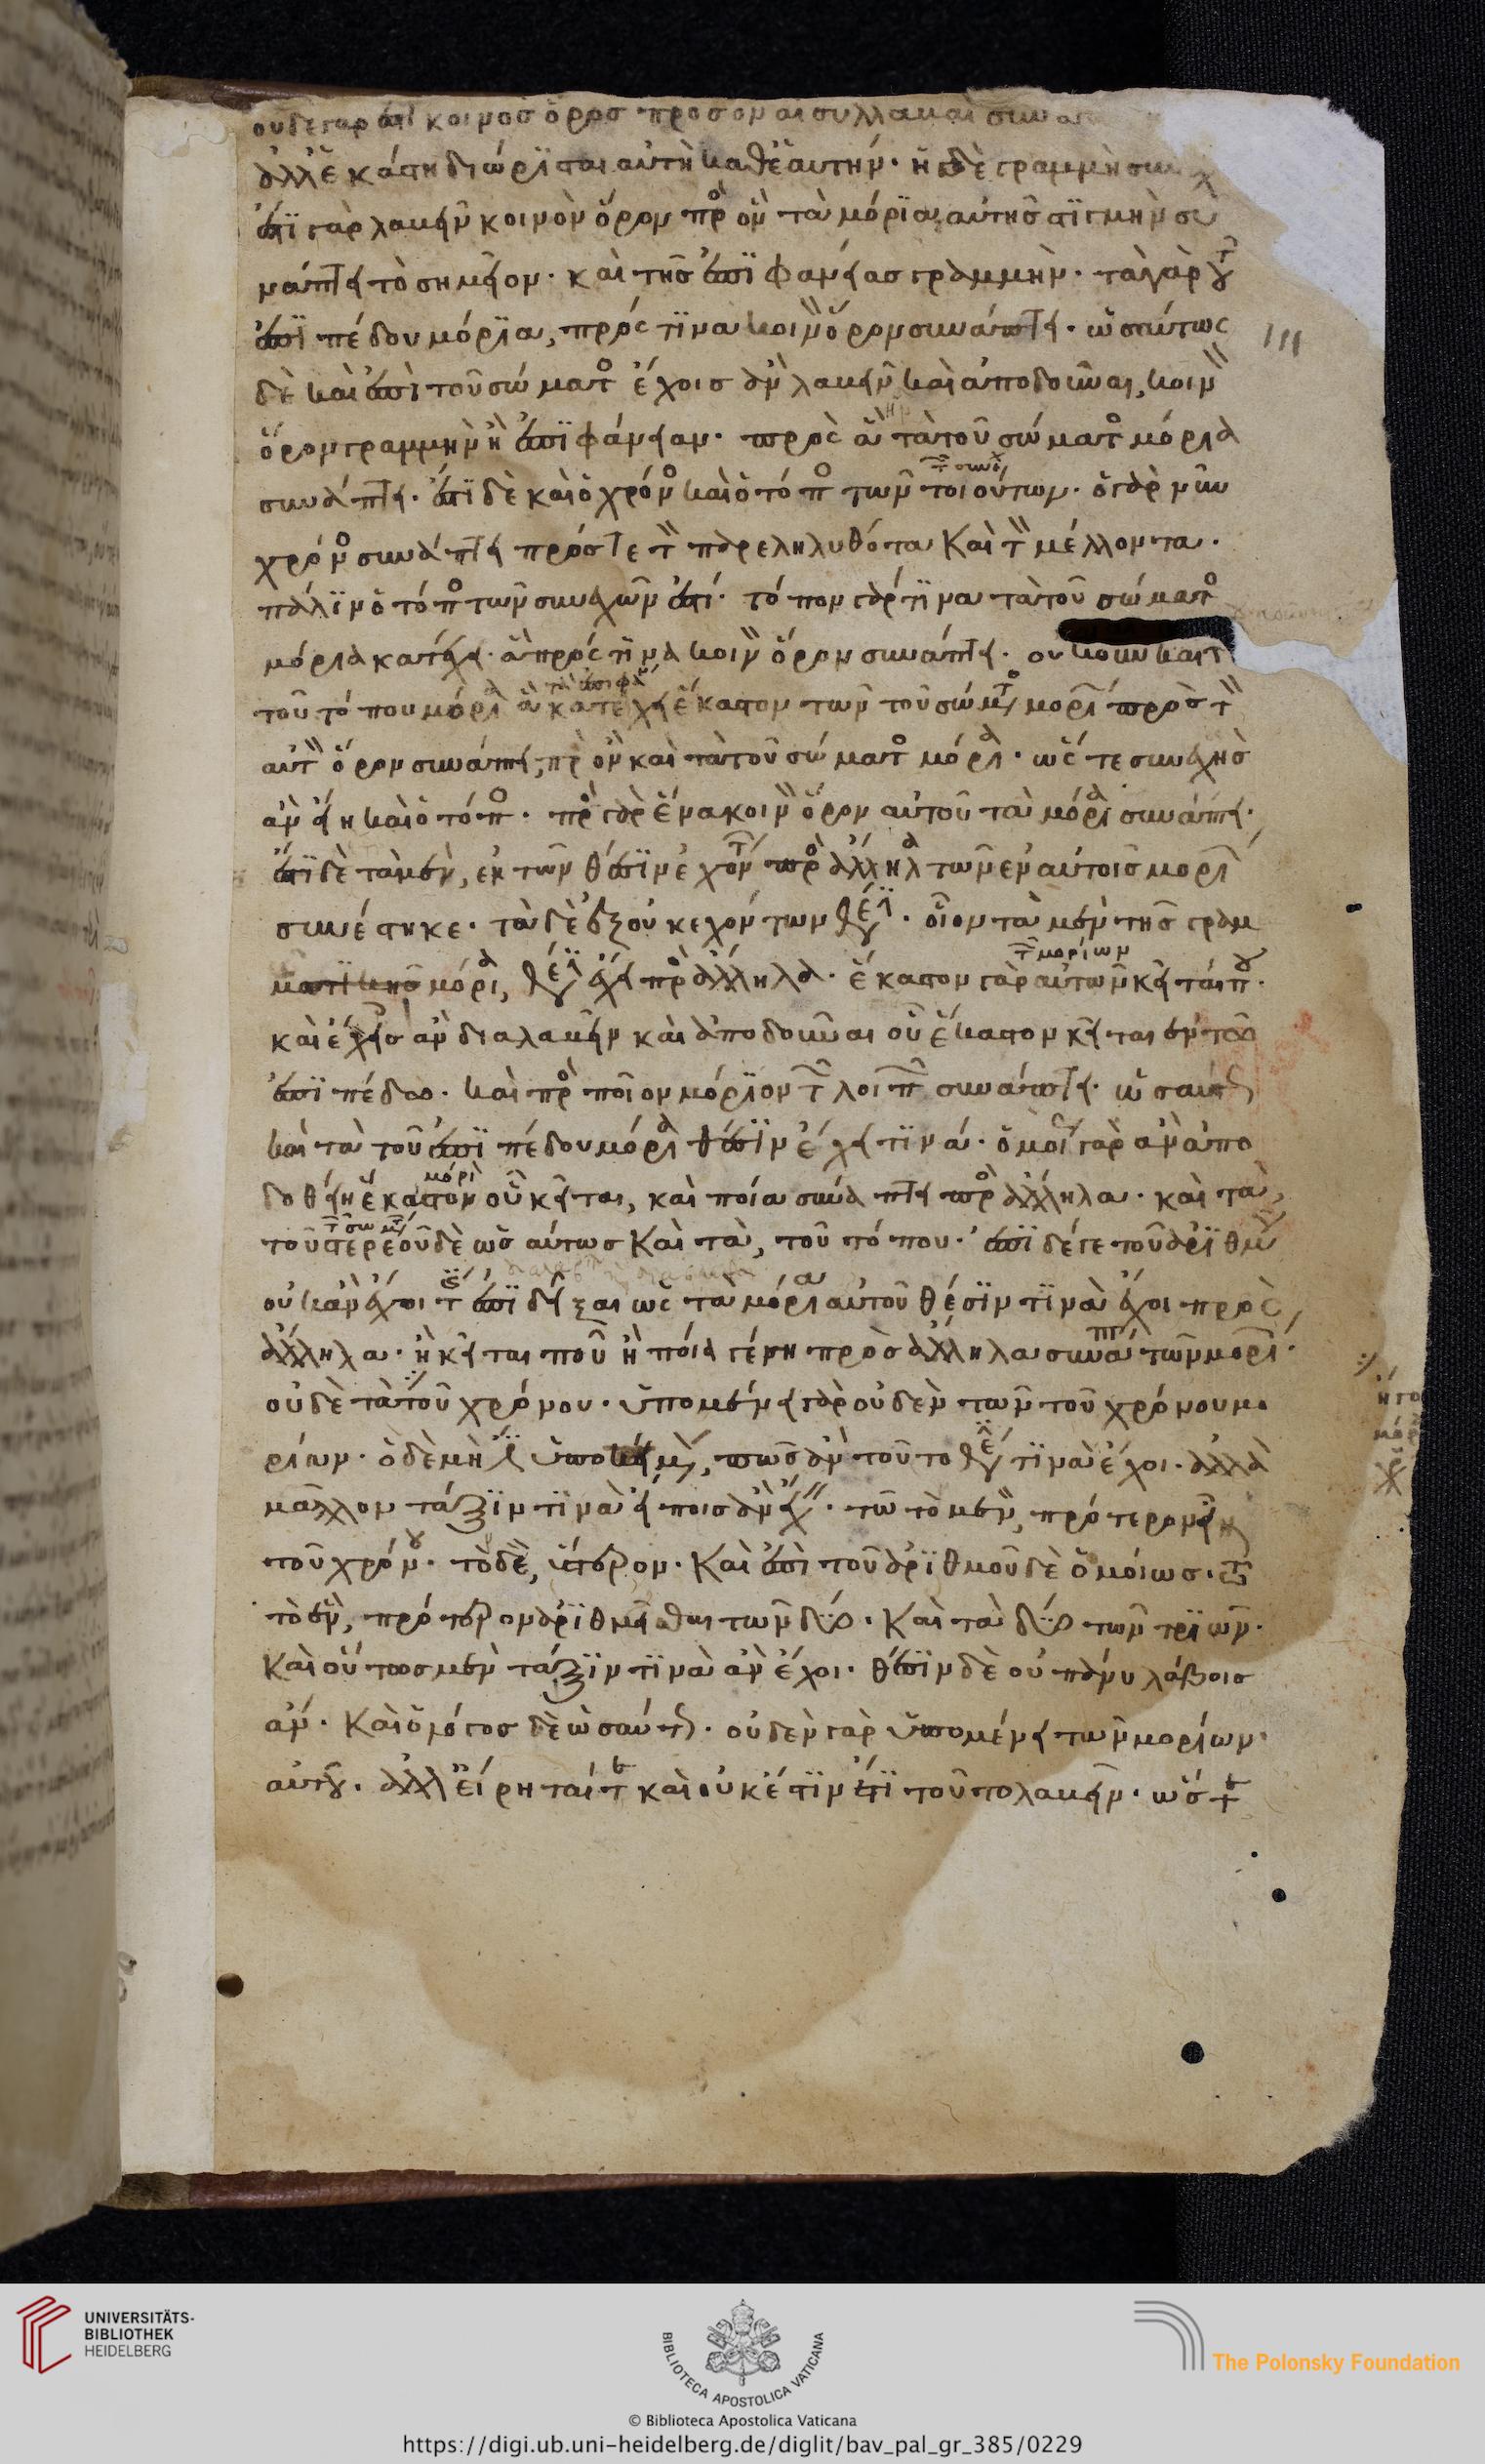 οὐδὲ γάρ ἐστι κοινὸς ὅρος πρὸς ὃν αἱ συλλαβαὶ συνά
ἀλλ' ἑκάστη διώρισται αὐτὴ καθ' ἑαυτήν. ἡ δὲ γραμμὴ συνεχ
ἔστι γὰρ λαβεῖν κοινὸν ὅρον πρὸς ὃν τὰ μόρια αὐτῆς στιγμὴν συ
νάπτει τὸ σημεῖον. καὶ τῆς ἐπιφανείας γραμμήν. τὰ γὰρ τοῦ
ἐπιπέδου μόρια, πρός τινα κοινὸν ὅρον συνάπτει. ὡσαύτως
δὲ καὶ ἐπὶ τοῦ σώματος ἔχοις ἂν λαβεῖν καὶ ἀποδοῦναι, κοινὸν
ὅρον γραμμὴν ἢ ἐπιφάνειαν. πρὸς ἣν τὰ τοῦ σώματος μόρια
συνάπτει. ἔστι δὲ καὶ ὁ χρόνος καὶ ὁ τόπος τῶν τοιούτων. ὁ γὰρ νῦν
χρόνος συνάπτει πρός τε τὸν παρεληλυθότα καὶ τὸν μέλλοντα.
πάλιν ὁ τόπος τῶν συνεχῶν ἐστί. τόπον γάρ τινα τὰ τοῦ σώματος
μόρια κατέχει. ἃ πρός τινα κοινὸν ὅρον συνάπτει. οὐκοῦν καὶ τ
τοῦ τόπου μόρια ἃ κατέχει ἕκαστον τῶν τοῦ σώματος μορίων πρὸς τὸν
αὐτὸν ὅρον συνάπτει, πρὸς ὃν καὶ τὰ τοῦ σώματος μόρια. ὥστε συνεχὴς
ἂν εἴη καὶ ὁ τόπος. πρὸς γὰρ ἕνα κοινὸν ὅρον αὐτοῦ τὰ μόρια συνάπτει.
ἔτι δὲ τὰ μὲν, ἐκ τῶν θέσιν ἐχόντων πρὸς ἄλληλα τῶν ἐν αὐτοῖς μορίων
συνέστηκε. τὰ δὲ ἐξ οὐκ ἐχόντων θέσιν. οἷον τὰ μὲν τῆς γραμ
μόρια, θέσιν ἔχει πρὸς ἄλληλα. ἕκαστον γὰρ αὐτῶν κεῖταί που.
καὶ ἔχεις ἂν διαλαβεῖν καὶ ἀποδοῦναι οὗ ἕκαστον κεῖται ἐν τῶ
ἐπιπέδω. καὶ πρὸς ποῖον μόριον τῶν λοιπῶν συνάπτει. ὡσαύτως
καὶ τὰ τοῦ ἐπιπέδου μόρια θέσιν ἔχει τινά. ὁμοίως γὰρ ἂν ἀπο
δοθείη ἕκαστον οὗ κεῖται, καὶ ποῖα συνάπτει πρὸς ἄλληλα. καὶ τὰ
τοῦ στερεοῦ δὲ ὡσαύτως καὶ τὰ, τοῦ τόπου. ἐπὶ δέ γε τοῦ ἀριθμοῦ
οὐκ ἂν ἔχοι τις ἐπιδεῖξαι ὡς τὰ μόρια αὐτοῦ θέσιν τινὰ ἔχοι πρὸς
ἄλληλα. ἢ κεῖται ποῦ ἢ ποῖά γέ πη πρὸς ἄλληλα συνάπτει τῶν μορίων.
οὐδὲ τὰ τοῦ χρόνου. ὑπομένει γὰρ οὐδὲν τῶν τοῦ χρόνου μο
ρίων. ὃ δὲ μὴ ἔστιν ὑπομένον, πῶς ἂν τοῦτο θέσιν τινὰ ἔχοι. ἀλλὰ
μᾶλλον τάξιν τινὰ εἴποις ἂν ἔχειν. τῶ τὸ μὲν, πρότερον εἶναι
τοῦ χρόνου. τὸ δὲ, ὕστερον. καὶ ἐπὶ τοῦ ἀριθμοῦ δὲ ὁμοίως. τῶ
τὸ ἓν, πρότερον ἀριθμεῖσθαι τῶν δύο. καὶ τὰ δύο τῶν τριῶν.
καὶ οὕτως μὲν τάξιν τινὰ ἂν ἔχοι. θέσιν δὲ οὐ πάνυ λάβοις
ἄν. καὶ ὁ λόγος δὲ ὡσαύτως. οὐδὲν γὰρ ὑπομένει τῶν μορίων
αὐτοῦ. ἀλλ' εἴρηταί τε καὶ οὐκ ἔστιν ἔτι τοῦτο λαβεῖν. ὥστε
UNIVERSITÄTS-
BIBLIOTHEK
HEIDELBERG
BIBLIOTECA APOSTOLICA VATICANA
The Polonsky Foundation
© Biblioteca Apostolica Vaticana
https://digi.ub.uni-heidelberg.de/diglit/bav_pal_gr_385/0229